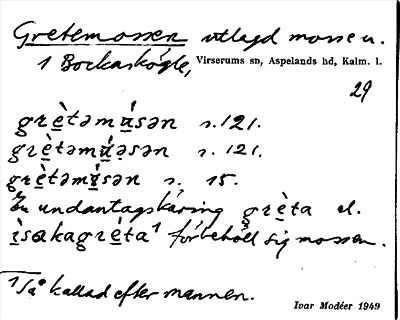 Gretemossen utlagd mosse u.
1 Bockaskögle, Virserums sn, Aspelands hd, Kalm. l.
29
grè̱təmú̱sən s. 121.
grè̱təmú̱ə̣sən s. 121.
grè̱təmú̱sən s. 15.
En undantagskäring grè̱ta el.
ì̱sakagrè̱ta¹ förbehöll sig mossen.
¹ Så kallad efter mannen.
Ivar Modéer 1949